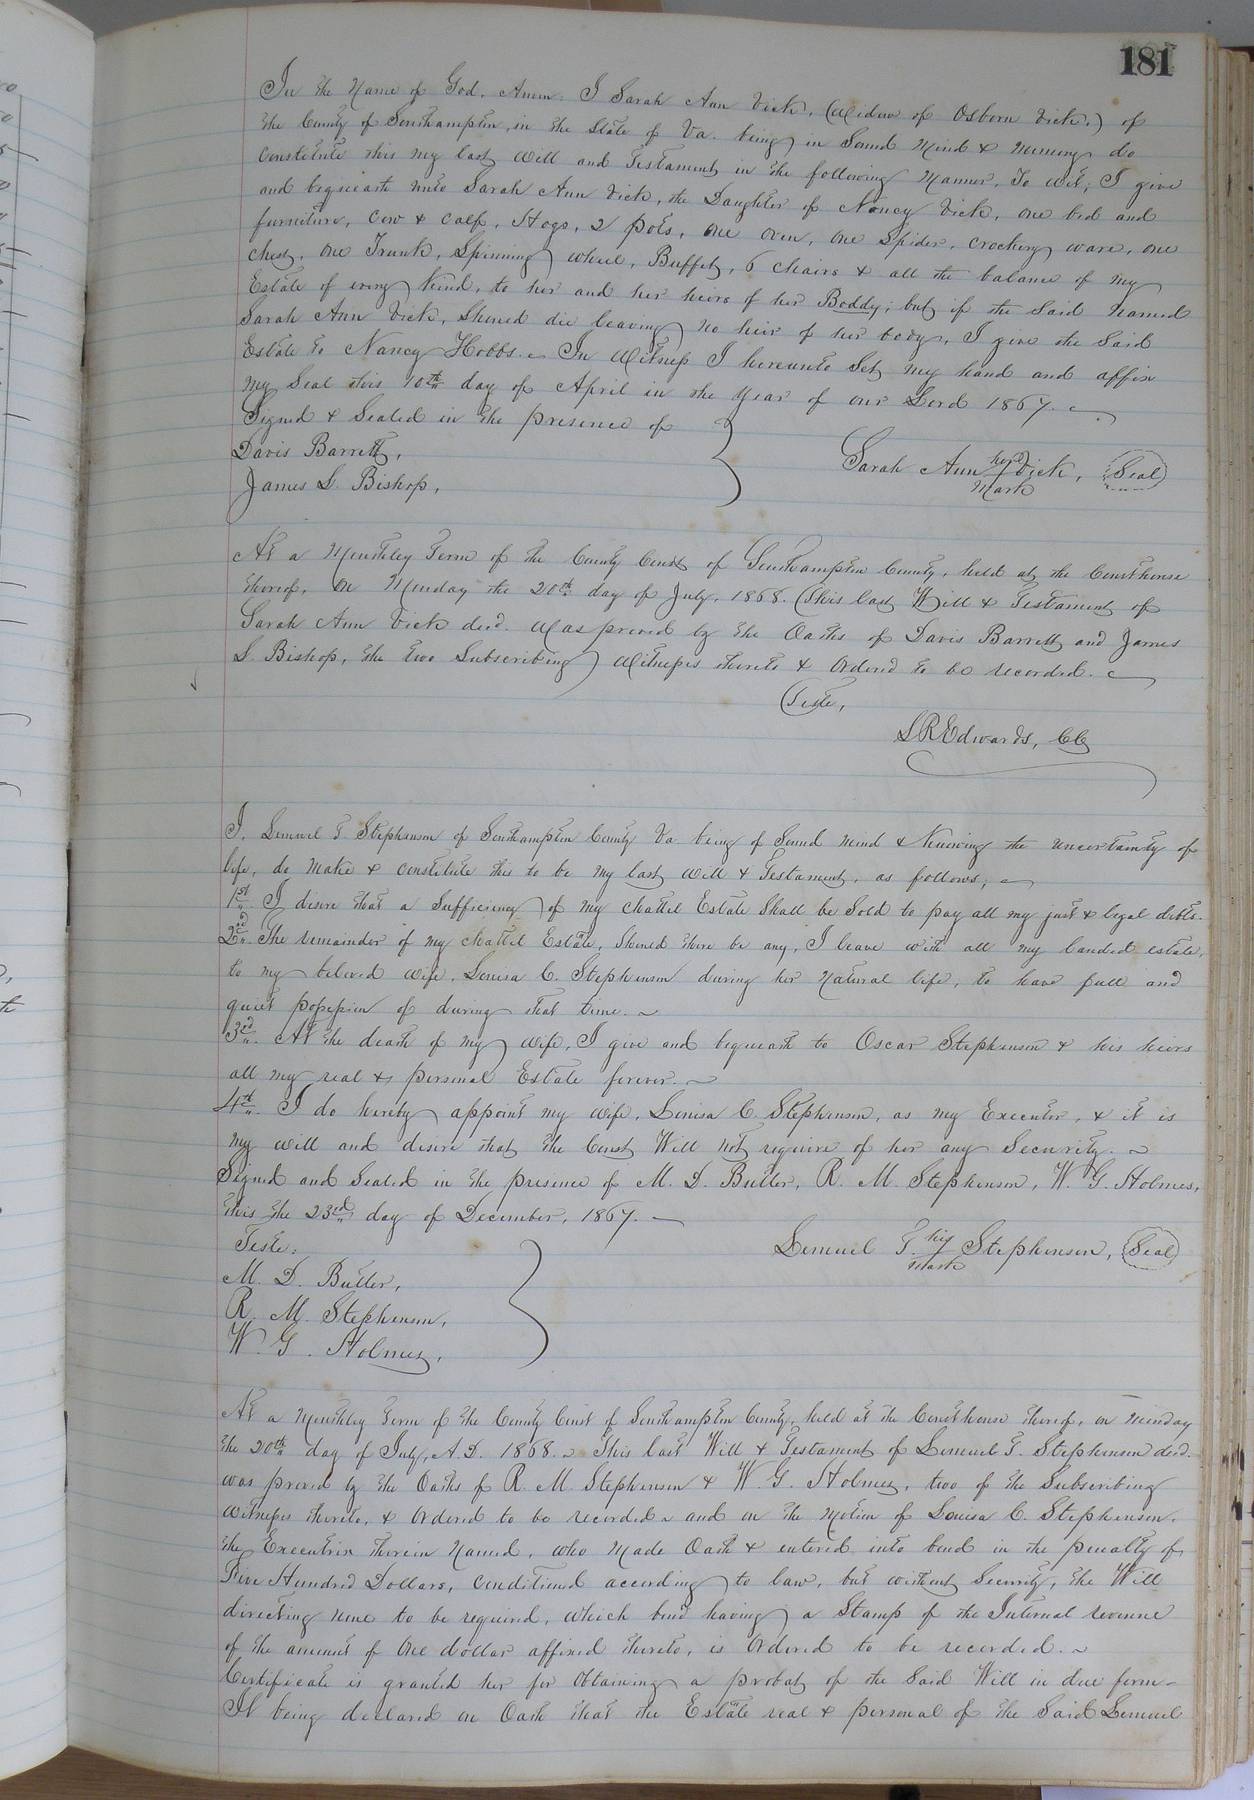 181
In the Name of God. Amen. I Sarah Ann Vick, (Widow of Osborn Vick,) of
the County of Southampton, in the State of Va. being in Sound Mind & Memory do
Constitute this my last Will and Testament in the following Manner, To wit; I give
and bequeath unto Sarah Ann Vick, the Daughter of Nancy Vick, one bed and
furniture, Cow & Calf, Hogs, 2 pots, one oven, one Spider, crockery ware, one
chest, one Trunk, Spinning wheel, Buffet, 6 chairs & all the balance of my
Estate of every kind, to her and her heirs of her Boddy; but if the Said named
Sarah Ann Vick, Should die leaving no heir of her body, I give the Said
Estate to Nancy Hobbs. In Witness I hereunto Set my hand and affix
my Seal this 10th day of April in the Year of our Lord 1867.
Signed & Sealed in the presence of
Davis Barrett,
James L. Bishop,
Sarah Ann her Vick, Seal
Mark
At a Monthley Term of the County Court of Southampton County, held at the Courthouse
thereof, on Monday the 20th day of July, 1868. This last Will & Testament of
Sarah Ann Vick decd. Was proved by the Oaths of Davis Barrett and James
L. Bishop, the two Subscribing Witnesses thereto & Ordered to be recorded.
Teste,
L R Edwards, CC
I. Lemuel T. Stephenson of Southampton County Va being of Sound mind & Knowing the uncertainty of
life, do make & constitute this to be my last will & Testament, as follows;
1st I desire that a Sufficiency of my chattel Estate Shall be Sold to pay all my just & legal debts.
2nd The remainder of my chattel Estate, Should there be any, I leave with all my landed estate,
to my beloved wife, Louisa C. Stephenson during her Natural life, to have full and
quiet possession of during that time.
3rd. At the death of my wife, I give and bequeath to Oscar Stephenson & his heirs
all my real & personal Estate forever.
4th. I do hereby appoint my wife, Louisa C. Stephenson, as my Executor, & it is
my will and desire that the Court Will not require of her any Security.
Signed and Sealed in the presence of M. D. Butler, R. M. Stephenson, W. G. Holmes,
this the 23rd day of December, 1867.
Teste:
Lemuel T. his Stephenson, Seal
mark
M. D. Butler,
R. M. Stephenson,
W. G. Holmes,
At a Monthley Term of the County Court of Southampton County, held at the Courthouse thereof, on Monday
the 20th day of July, A.D. 1868. This last Will & Testament of Lemuel T. Stephenson decd.
was proved by the Oaths of R. M. Stephenson & W. G. Holmes, two of the Subscribing
Witnesses thereto, & Ordered to be recorded and on the Motion of Louisa C. Stephenson,
the Executrix therein Named, who made Oath & entered into bond in the penalty of
Five Hundred Dollars, Conditioned according to law, but without Security, the Will
directing none to be required, which bond having a Stamp of the Internal revenue
of the amount of One dollar affixed thereto, is Ordered to be recorded.
Certificate is granted her for Obtaining a probat of the Said Will in due form
It being declared on Oath that the Estate real & personal of the Said Lemuel